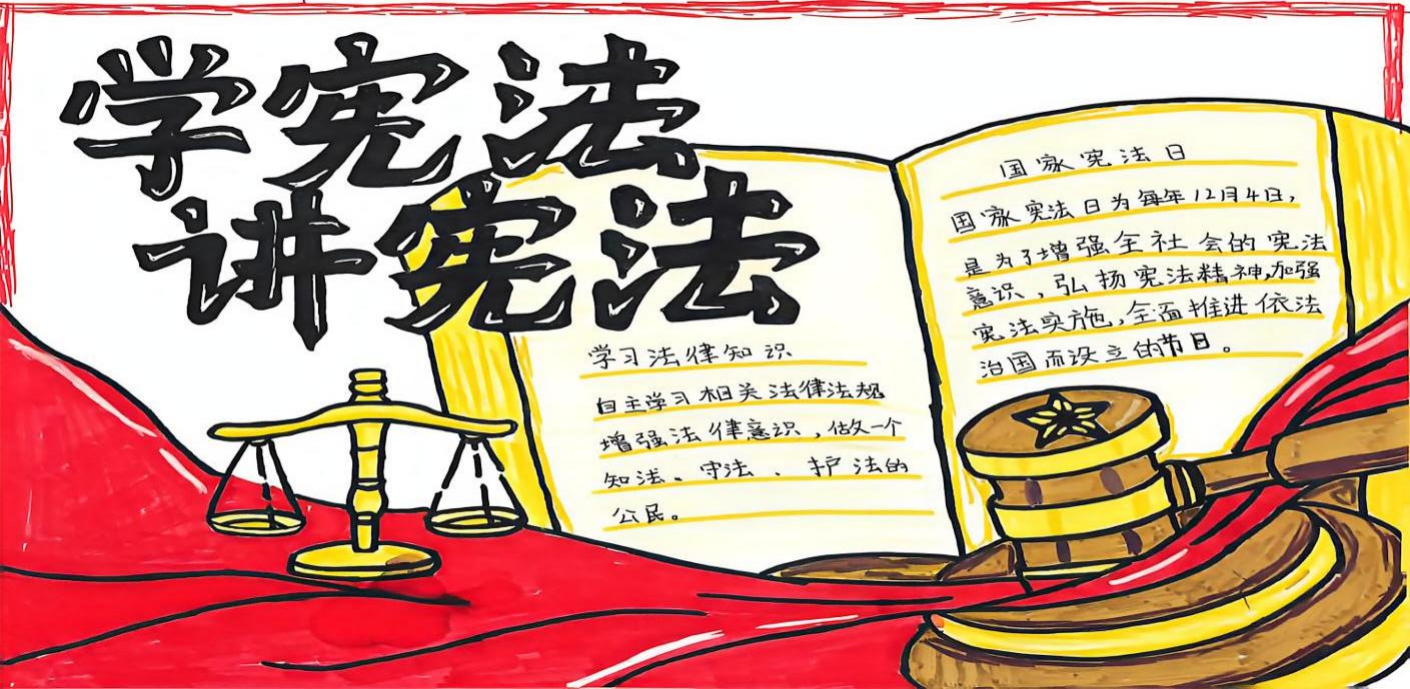 学宪法
讲宪法
学习法律知识
自主学习相关法律法规
增强法律意识，做一个
知法、守法、护法的
公民。
国家宪法日
国家宪法日为每年12月4日，
是为了增强全社会的宪法
意识，弘扬宪法精神，加强
宪法实施，全面推进依法
治国而设立的节日。